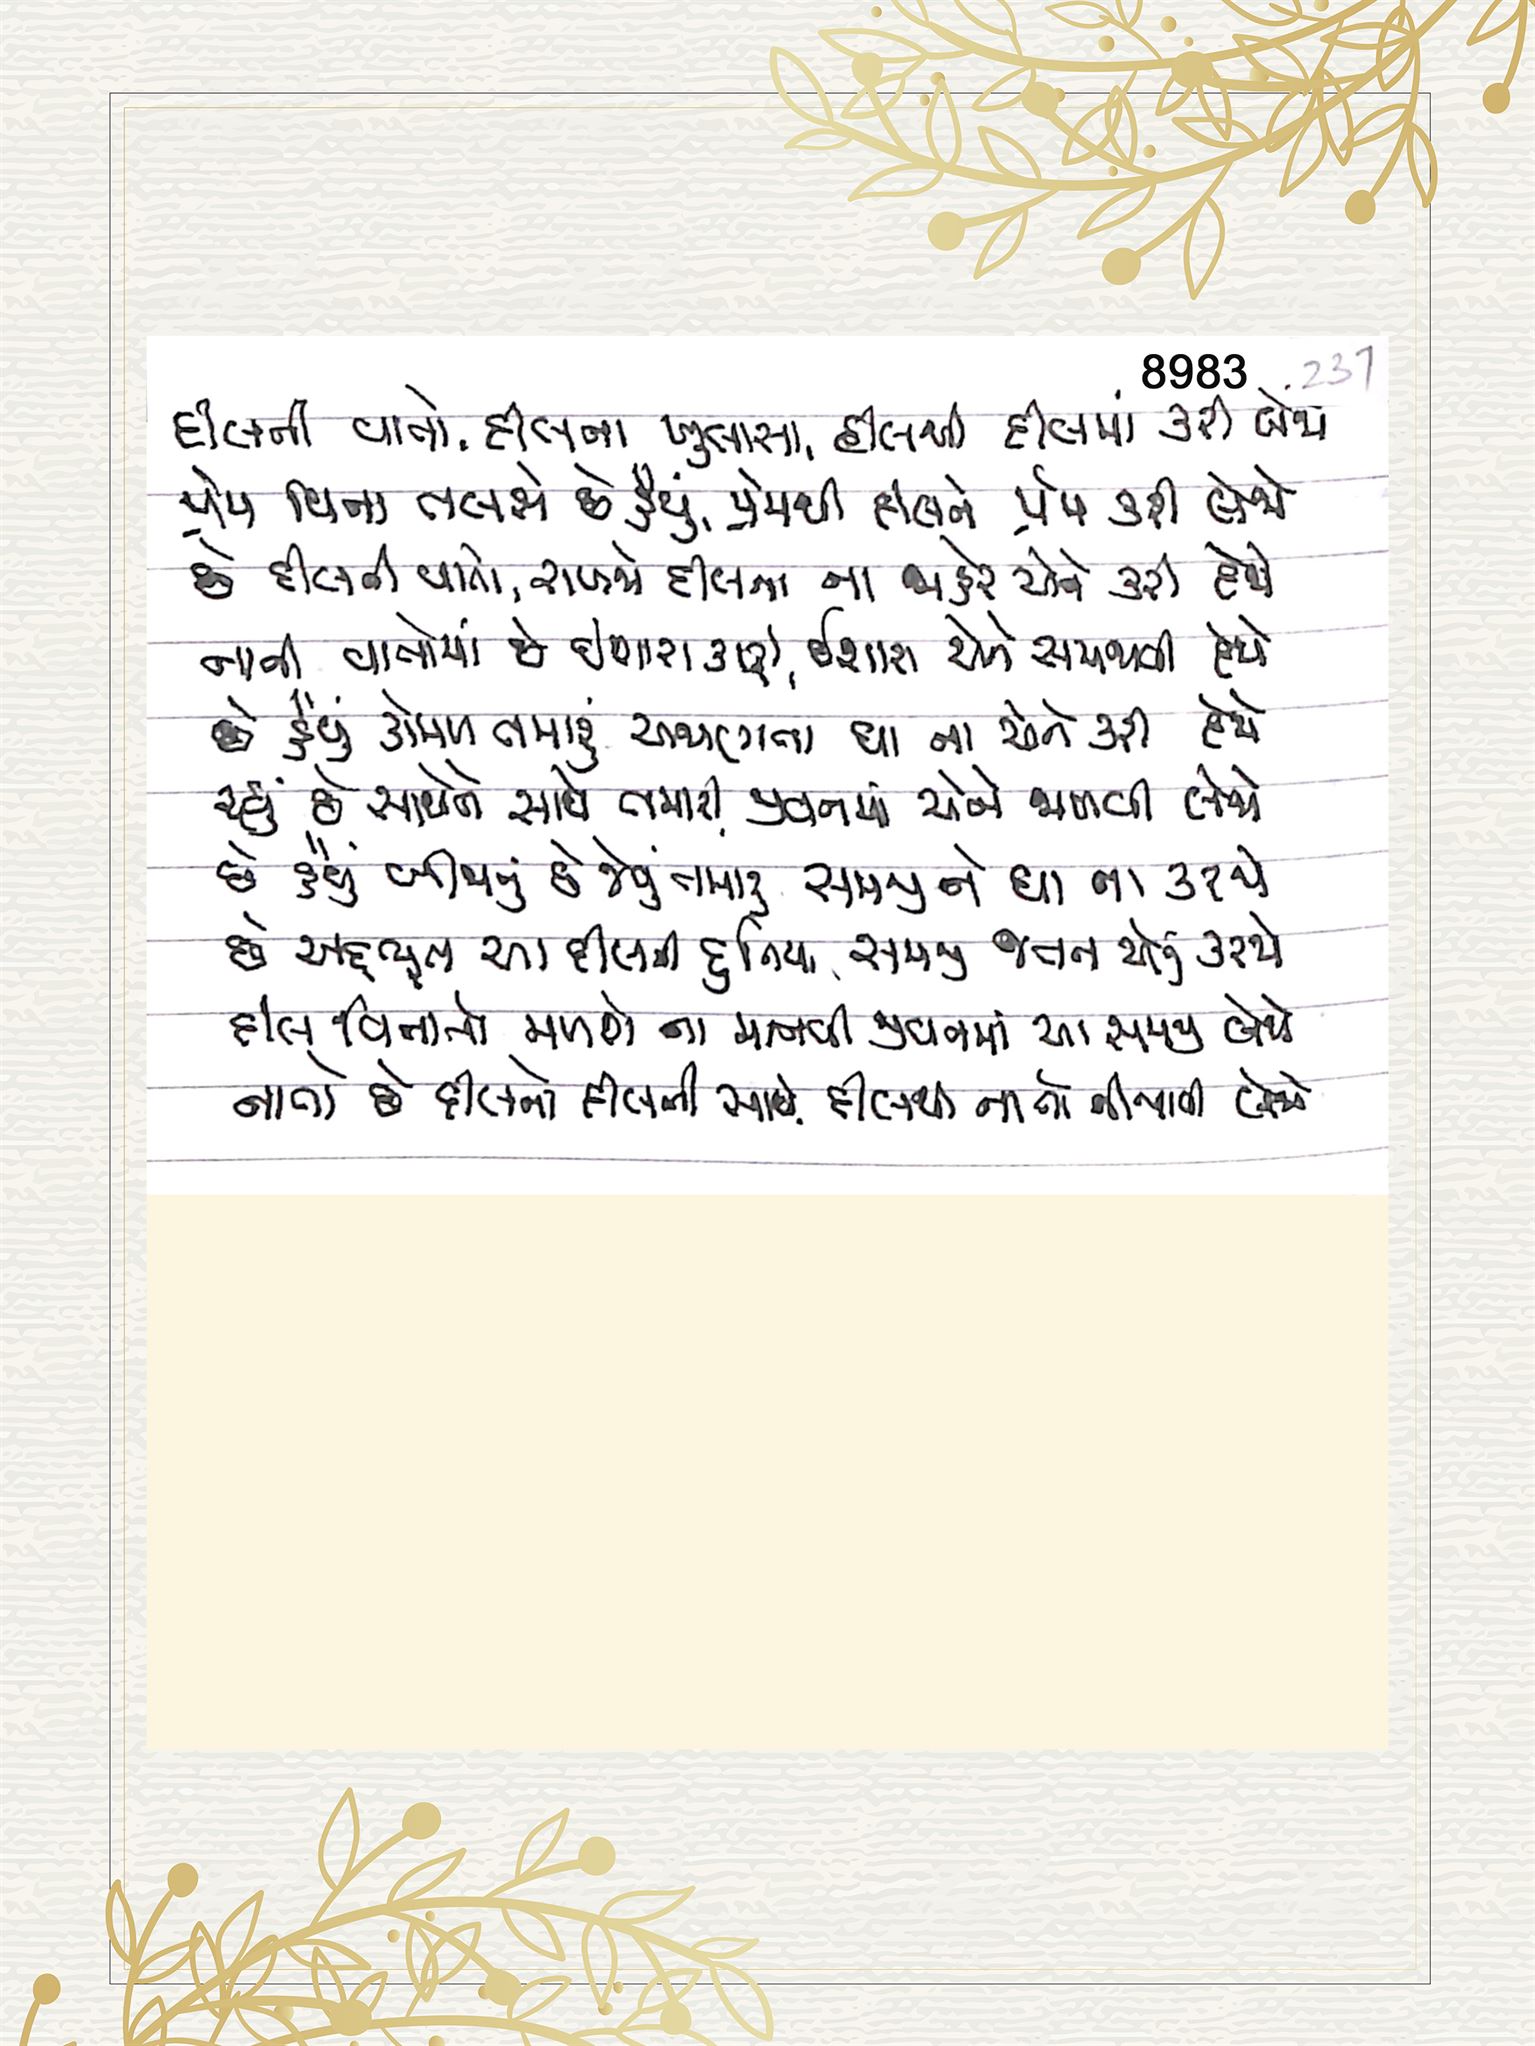 8983 237
દીલની વાતો, દીલના ખુલાસા, દીલથી દીલમાં કરી લેજે
પ્રેમ વિના તલસે છે હૈયું, પ્રેમથી દીલને પ્રેમ કરી લેજે
છે દીલની વાતો, રાખજે દીલમાં ના જાહેર એને કરી દેજે
નાની વાતોમાં છે ઇશારા, ઈશારા એને સમજાવી દેજે
છે હૈયું કોમળ તમારું અજાણતા ઘા ના એને કરી દેજે
રહ્યું છે સાથેને સાથે તમારી, જીવનમાં એને જાળવી લેજે
છે હૈયું બીજાનું છે જેવું તમારુ સમજીને ઘા ના કરજે
છે અદ્ભૂત આ દીલની દુનિયા, સમજી જતન એનું કરજે
દીલ વિનાનો મળશે ના માનવી જીવનમાં આ સમજી લેજે
નાતો છે દીલનો દીલની સાથે, દીલથી નાતો નીભાવી લેજે